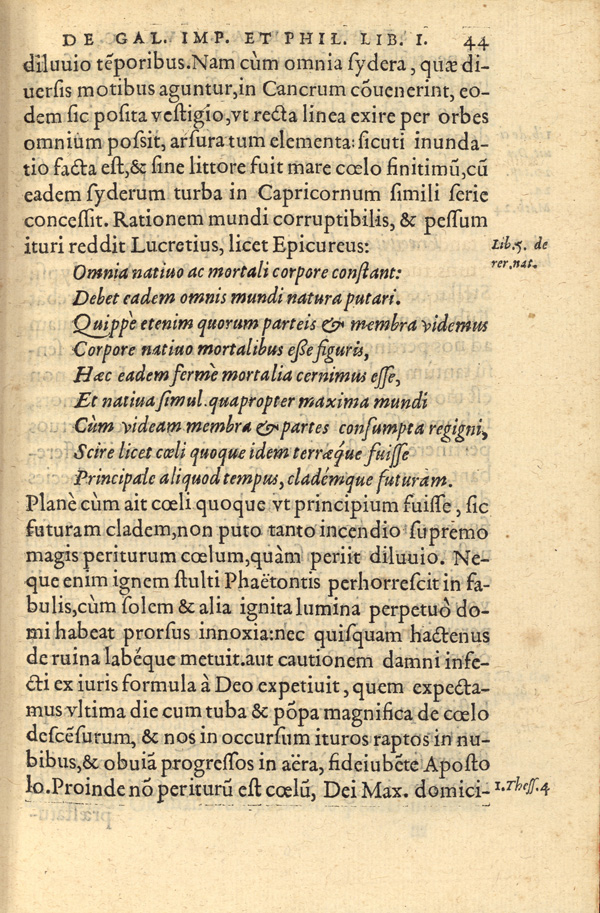 DE GAL. IMP. ET PHIL. LIB. I. 44
diluuio tẽporibus. Nam cùm omnia sydera, quæ di-
uersis motibus aguntur, in Cancrum cõuenerint, eo-
dem sic posita vestigio, vt recta linea exire per orbes
omnium possit, arsura tum elementa: sicuti inunda-
tio facta est, & sine littore fuit mare cœlo finitimũ, cũ
eadem syderum turba in Capricornum simili serie
concessit. Rationem mundi corruptibilis, & pessum
ituri reddit Lucretius, licet Epicureus:
Lib. 5. de
rer. nat.
Omnia natiuo ac mortali corpore constant:
Debet eadem omnis mundi natura putari.
Quippè etenim quorum parteis & membra videmus
Corpore natiuo mortalibus eße figuris,
Hæc eadem fermè mortalia cernimus esse,
Et natiua simul. quapropter maxima mundi
Cùm videam membra & partes consumpta regigni,
Scire licet cœli quoque idem terræq́ue fuisse
Principale aliquod tempus, cladémque futuram.
Planè cùm ait cœli quoque vt principium fuisse, sic
futuram cladem, non puto tanto incendio supremo
magis periturum cœlum, quàm periit diluuio. Ne-
que enim ignem stulti Phaëtontis perhorrescit in fa-
bulis, cùm solem & alia ignita lumina perpetuò do-
mi habeat prorsus innoxia: nec quisquam hactenus
de ruina labéque metuit. aut cautionem damni infe-
cti ex iuris formula à Deo expetiuit, quem expecta-
mus vltima die cum tuba & põpa magnifica de cœlo
descẽsurum, & nos in occursum ituros raptos in nu-
bibus, & obuiã progressos in aëra, fideiubẽte Aposto
lo. Proinde nõ periturũ est cœlũ, Dei Max. domici-
1. Thess. 4